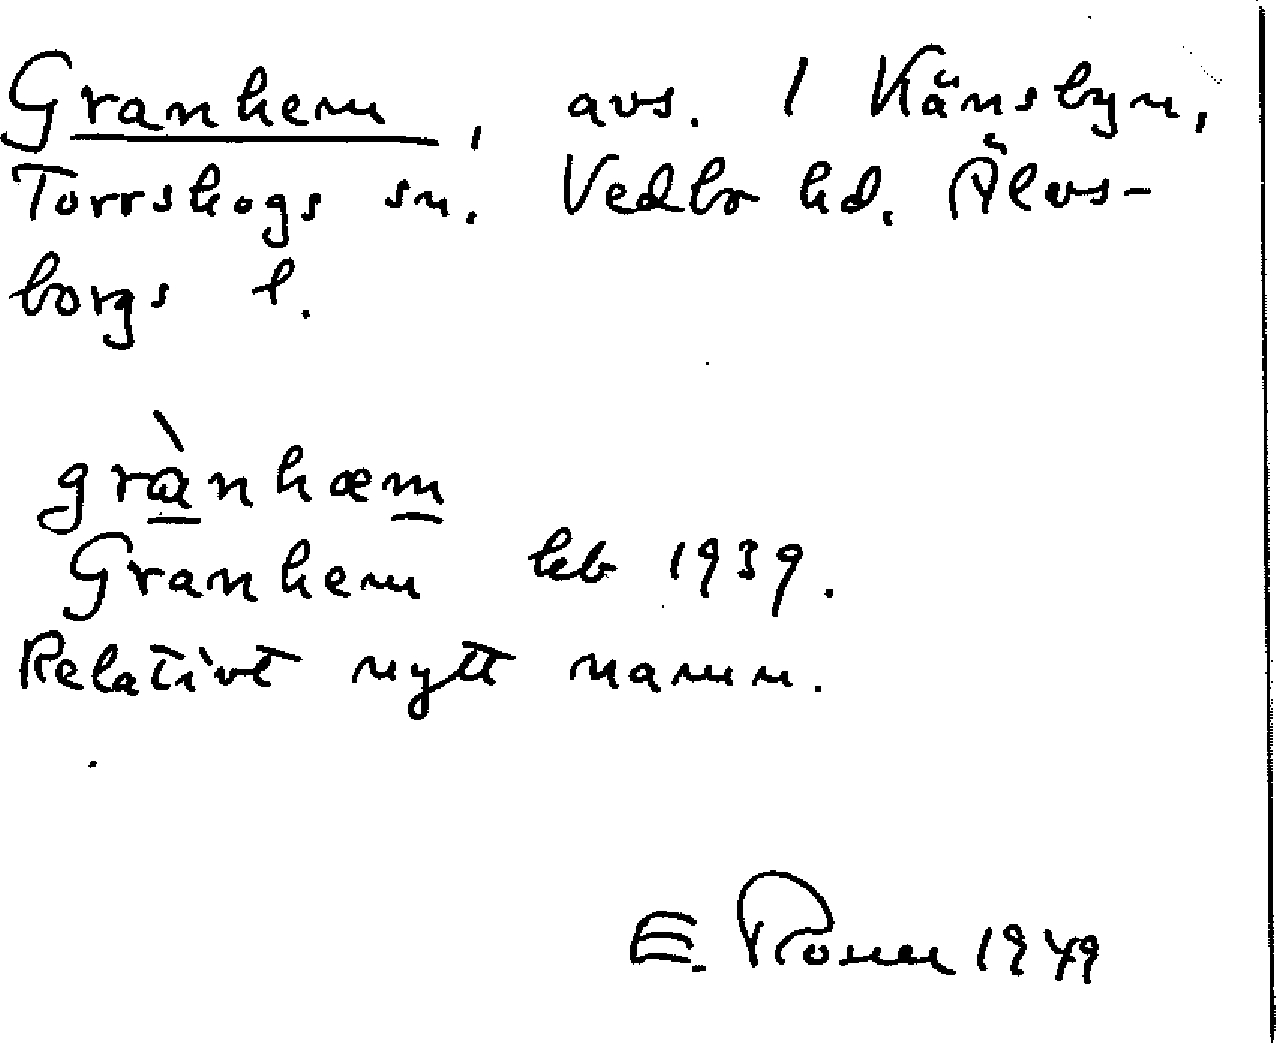 Granhem, avs. / Känsbyn,
Torrskogs sn. Vedbo hd. Älvs-
borgs l.
grànhæm
Granhem kb 1939.
Relativt nytt namn.
E. Rosen 1949